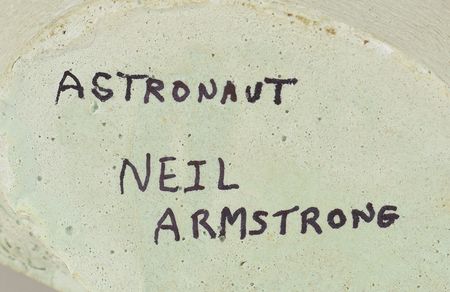 ASTRONAUT
NEIL
ARMSTRONG